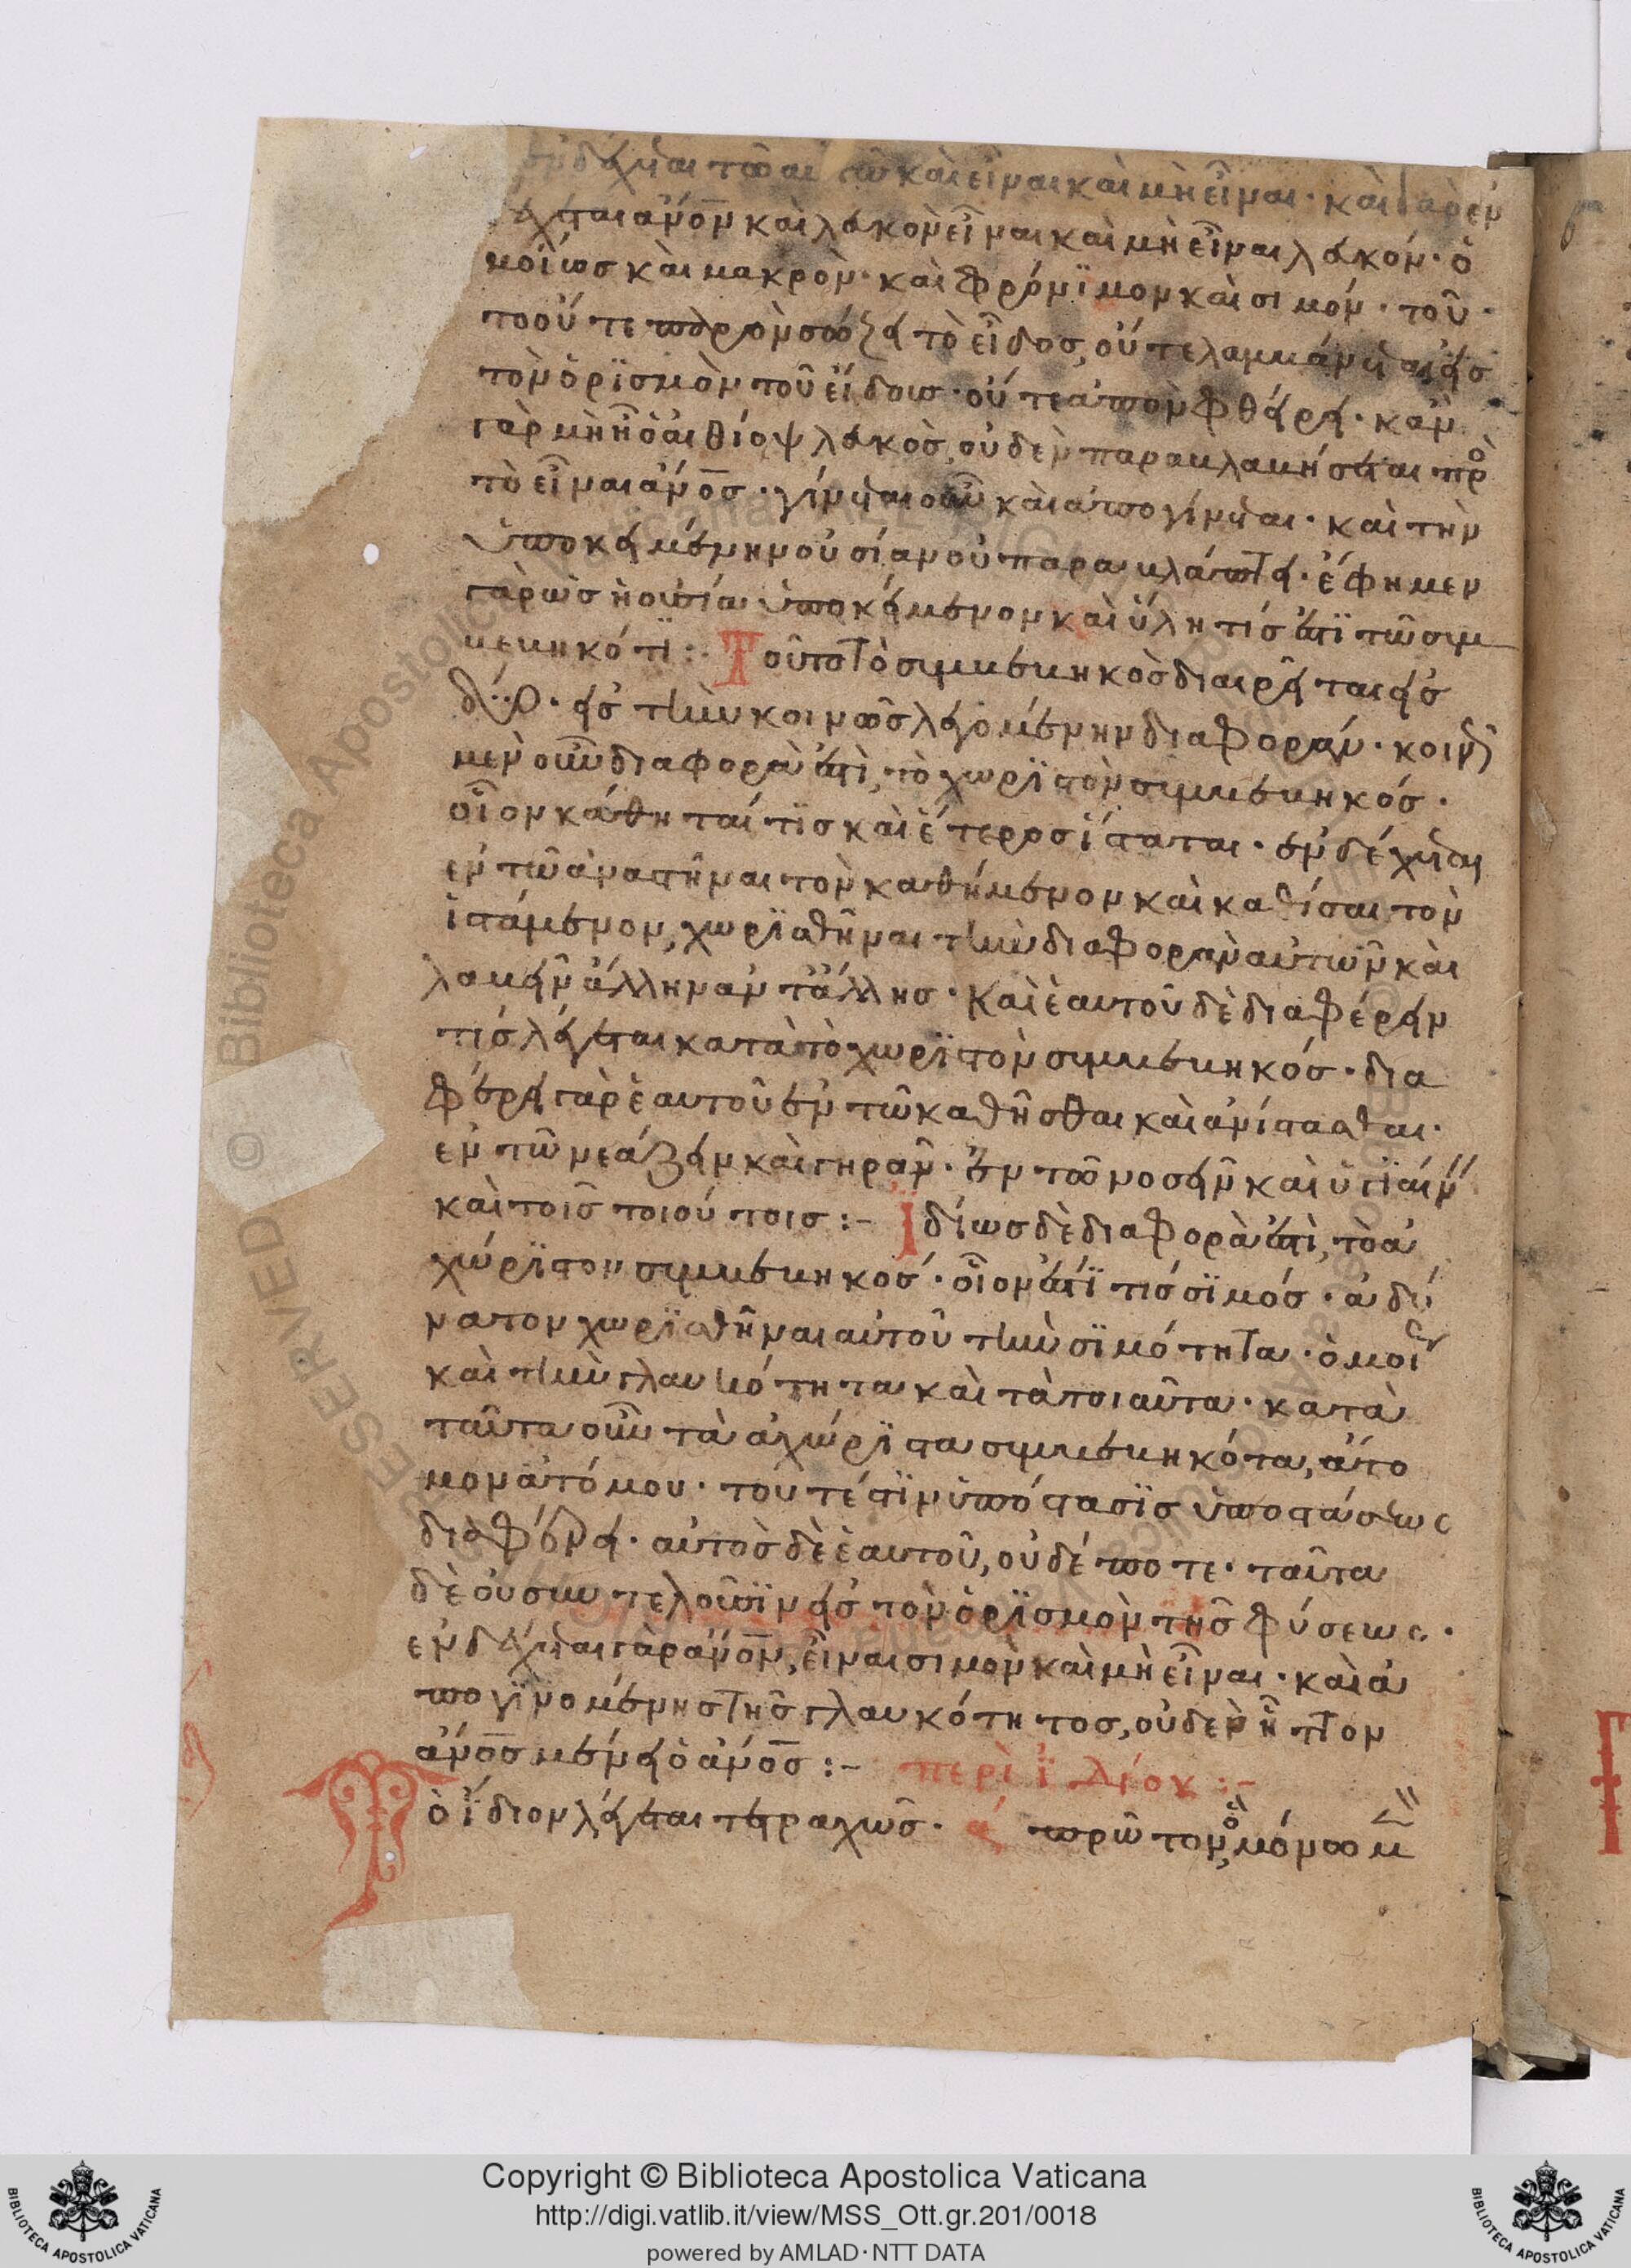 ἐνδέχεται τῶ αὐτῶ καὶ εἶναι καὶ μὴ εἶναι· καὶ γὰρ ἐν
δέχεται ἄνον καὶ λευκὸν εἶναι καὶ μὴ εἶναι λευκόν· ὁ
μοίως καὶ μακρὸν· καὶ φρόνϊμον καὶ σιμόν· τοῦ
το οὔτε παρὸν σώζει τὸ εἶδος, οὔτε λαμβάνεται εἰς
τὸν ὁρϊσμὸν τοῦ εἴδους· οὔτε ἀπὸν φθείρει· κἂν
γὰρ μὴ ἦ ὁ αἰθίοψ λευκὸς, οὐδὲν παραβλαβήσεται πρὸ
τὸ εἶναι ἄνος· γίνεται οὖν καὶ ἀπογίνεται· καὶ τὴν
ὑποκειμένην οὐσίαν οὐ παραβλάπτει· ἔφημεν
γὰρ ὡς ἡ οὐσία ὑποκείμενον καὶ ὕλη τίς ἐστϊ τῶ συμ
βεβηκότϊ :· Τοῦτο τὸ συμβεβηκὸς διαιρεῖται εἰς
δύο· εἰς τὴν κοινῶς λεγομένην διαφοράν· κοινὴ
μὲν οὖν διαφορὰ ἐστὶ, τὸ χωρϊστὸν συμβεβηκός·
οἷον κάθηταί τϊς καὶ ἕτερος ἵσταται· ἐνδέχεται
ἐν τῶ ἀναστῆναι τὸν καθήμενον καὶ καθίσαι τὸν
ἱστάμενον, χωρϊσθῆναι τὴν διαφορὰν αὐτῶν καὶ
λαβεῖν ἄλλην ἀντ' ἄλλης· Καὶ ἑαυτοῦ δὲ διαφέρειν
τίς λέγεται κατὰ τὸ χωρϊστὸν συμβεβηκός· δια
φέρει γὰρ ἑαυτοῦ ἐν τῶ καθῆσθαι καὶ ἀνίστασθαι·
ἐν τῶ νεάζειν καὶ γηρᾶν· ἐν τῶ νοσεῖν καὶ ὑγϊαίν
καὶ τοῖς τοιούτοις :- Ἰδίως δὲ διαφορὰ ἐστὶ, τὸ ἀ
χώρϊστον συμβεβηκός· οἷον ἐστϊ τις σϊμός· ἀδύ
νατον χωρϊσθῆναι αὐτοῦ τὴν σϊμότητα· ὁμοί
καὶ τὴν γλαυκότητα καὶ τὰ τοιαῦτα· κατὰ
ταῦτα οὖν τὰ ἀχώρϊστα συμβεβηκότα, ἄτο
μον ἀτόμου· τουτέστϊν ὑπόστασϊς ὑποστάσεως
διαφέρει· αὐτὸς δὲ ἑαυτοῦ, οὐδέποτε· ταῦτα
δὲ οὐ συντελοῦσϊν εἰς τὸν ὁρϊσμὸν τῆς φύσεως·
ἐνδέχεται γὰρ ἄνον, εἶναι σιμὸν καὶ μὴ εἶναι· καὶ ἀ
πογϊνομένης τῆς γλαυκότητος, οὐδὲν ἧττον
ἄνος μένει ὁ ἄνος :- περὶ ἰδίου :-
Τὸ ἴδιον λέγεται τετραχῶς· α πρῶτον, ὃ μόνω μ